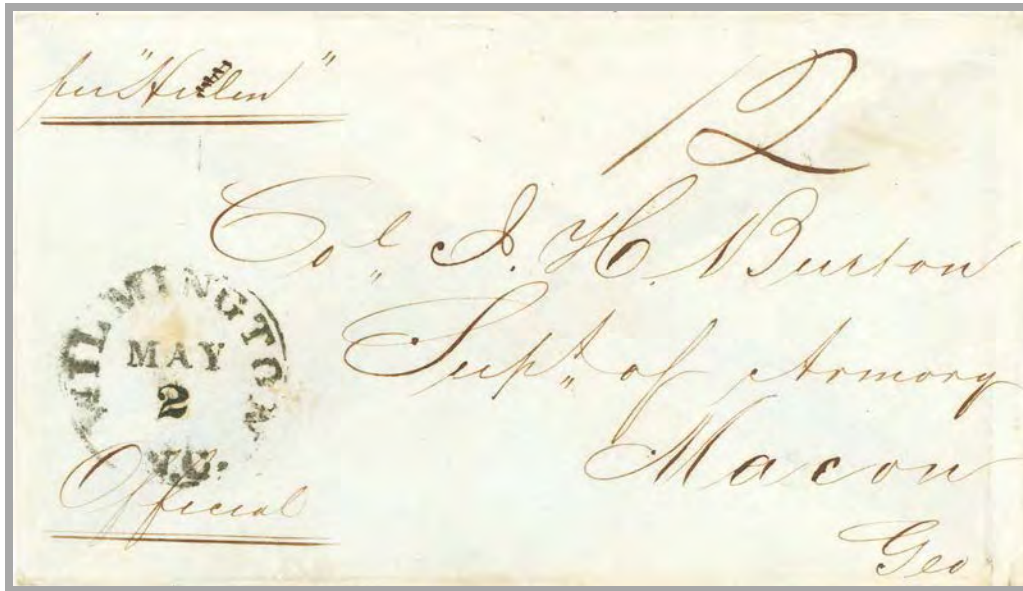 per "Helen"
12
Col. J. H. Burton
Supt. of Armory
Macon
Geo
WILMINGTON
MAY
2
N.C.
Official